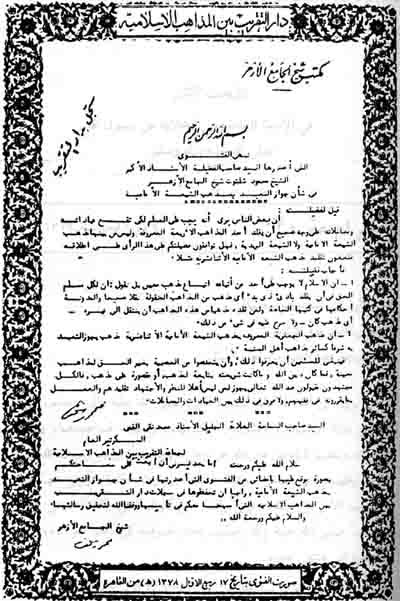 دار التقريب بين المذاهب الاسلامية
مكتب شيخ الجامع الأزهر
بسم الله الرحمن الرحيم
نص الفتوى
التى أصدرها السيد صاحب الفضيلة الأستاذ الأكبر
الشيخ محمود شلتوت شيخ الجامع الأزهر
فى شأن جواز التعبد بمذهب الشيعة الامامية
قيل لفضيلته :
ان بعض الناس يرى أنه يجب على المسلم لكى تقع عباداته
ومعاملاته على وجه صحيح أن يقلد أحد المذاهب الأربعة المعروفة وليس من بينها مذهب
الشيعة الامامية ولا الشيعة الزيدية ، فهل توافقون فضيلتكم على هذا الرأى على اطلاقه
فتمنعون تقليد مذهب الشيعة الامامية الاثنا عشرية مثلا
فأجاب فضيلته :
١ - ان الاسلام لا يوجب على أحد من أتباعه اتباع مذهب معين بل نقول : ان لكل مسلم
الحق فى أن يقلد بادئ ذى بدء أى مذهب من المذاهب المنقولة نقلا صحيحا والمدونة
أحكامها فى كتبها الخاصة ولمن قلد مذهبا من هذه المذاهب أن ينتقل الى غيره
أى مذهب كان - ولا حرج عليه فى شئ من ذلك
٢ - ان مذهب الجعفرية المعروف بمذهب الشيعة الامامية الاثنا عشرية مذهب يجوز التعبد
به شرعا كسائر مذاهب أهل السنة
فينبغى للمسلمين أن يعرفوا ذلك ، وأن يتخلصوا من العصبية بغير الحق لمذاهب
معينة ، فما كان دين الله وما كانت شريعته بتابعة لمذهب أو مقصورة على مذهب ، فالكل
مجتهدون مقبولون عند الله تعالى يجوز لمن ليس أهلا للنظر والاجتهاد تقليدهم والعمل
بما يقررونه فى فقههم ، ولا فرق فى ذلك بين العبادات والمعاملات
السيد صاحب السماحة العلامة الجليل الأستاذ محمد تقى القمى
السكرتير العام
لجماعة التقريب بين المذاهب الاسلامية
سلام الله عليكم ورحمته أما بعد فيسرنى أن أبعث الى سماحتكم
بصورة موقع عليها بامضائى من الفتوى التى أصدرتها فى شأن جواز التعبد
بمذهب الشيعة الامامية ، راجيا أن تحفظوها فى سجلات دار التقريب
بين المذاهب الاسلامية التى أسهمنا معكم فى تأسيسها ووفقنا الله لتحقيق رسالتها
والسلام عليكم ورحمة الله
شيخ الجامع الأزهر
صورة الفتوى بتاريخ ١٧ ربيع الاول ١٣٧٨ (هـ) من القاهرة